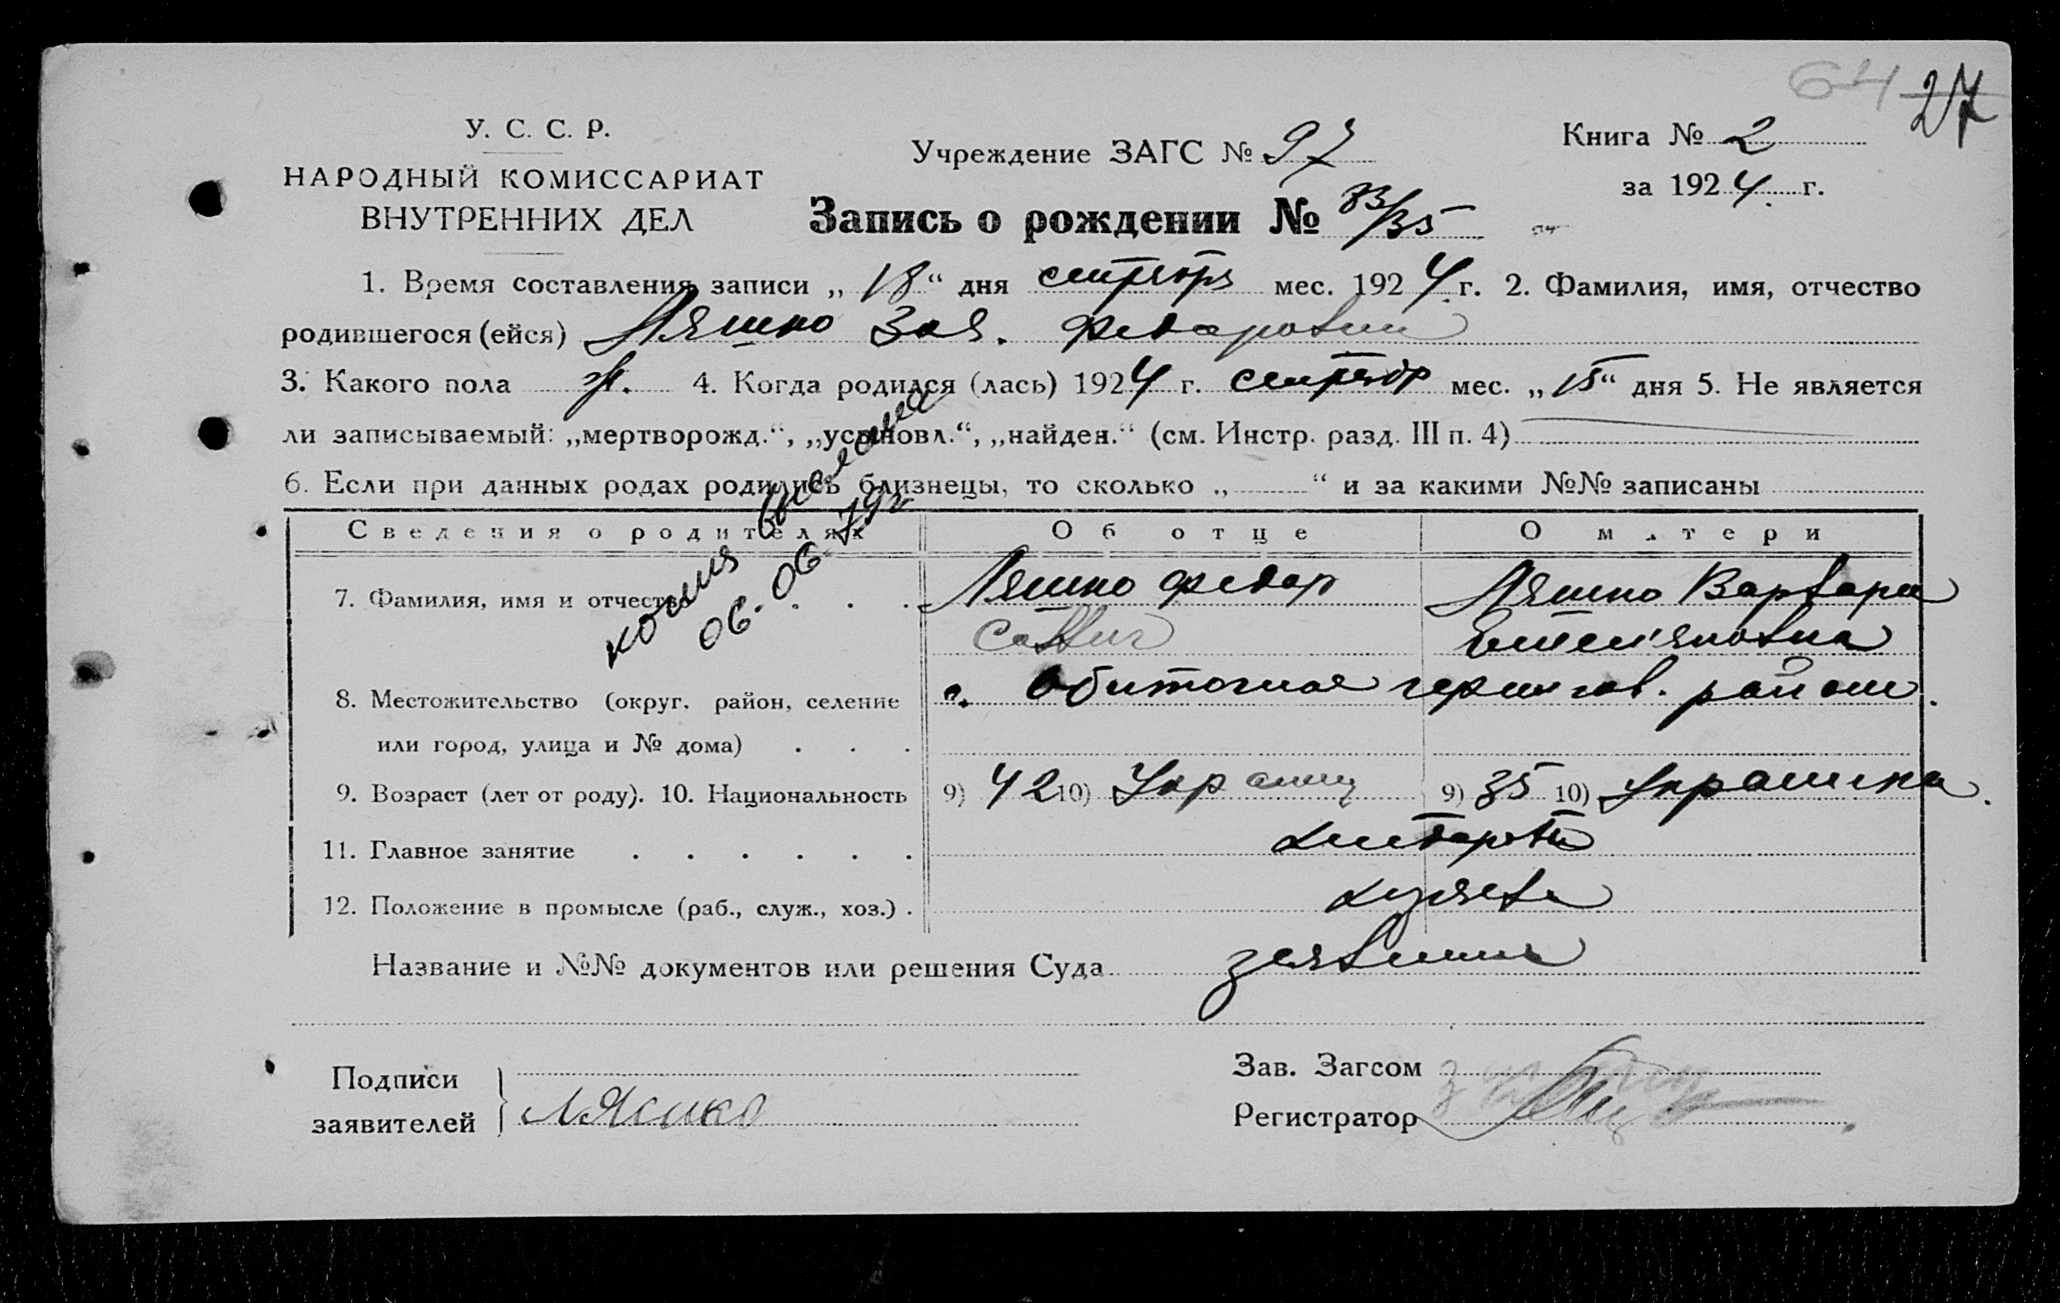 64 27
У. С. С. Р.
НАРОДНЫЙ КОМИССАРИАТ
ВНУТРЕННИХ ДЕЛ
Учреждение ЗАГС № 97
Книга № 2
за 1924 г.
Запись о рождении № 83/35
1. Время составления записи „18“ дня сентября мес. 1924 г. 2. Фамилия, имя, отчество
родившегося (ейся) Ляшко Зоя.
3. Какого пола ж. 4. Когда родился (лась) 1924 г. сентябр мес. „15“ дня 5. Не является
ли записываемый: „мертворожд.“, „усыновл.“, „найден.“ (см. Инстр. разд. III п. 4)
6. Если при данных родах родились близнецы, то сколько „ “ и за какими №№ записаны
копия выслана
06.06.79г
Сведения о родителях Об отце О матери
7. Фамилия, имя и отчество Ляшко Федор Ляшко Варвара
Савич Емельяновна
8. Местожительство (округ, район, селение с. Обиточное район
или город, улица и № дома)
9. Возраст (лет от роду). 10. Национальность 9) 42 10) Украинц 9) 35 10) Украинка.
11. Главное занятие
12. Положение в промысле (раб., служ., хоз.)
Название и №№ документов или решения Суда
Подписи
заявителей Ляшко
Зав. Загсом
Регистратор